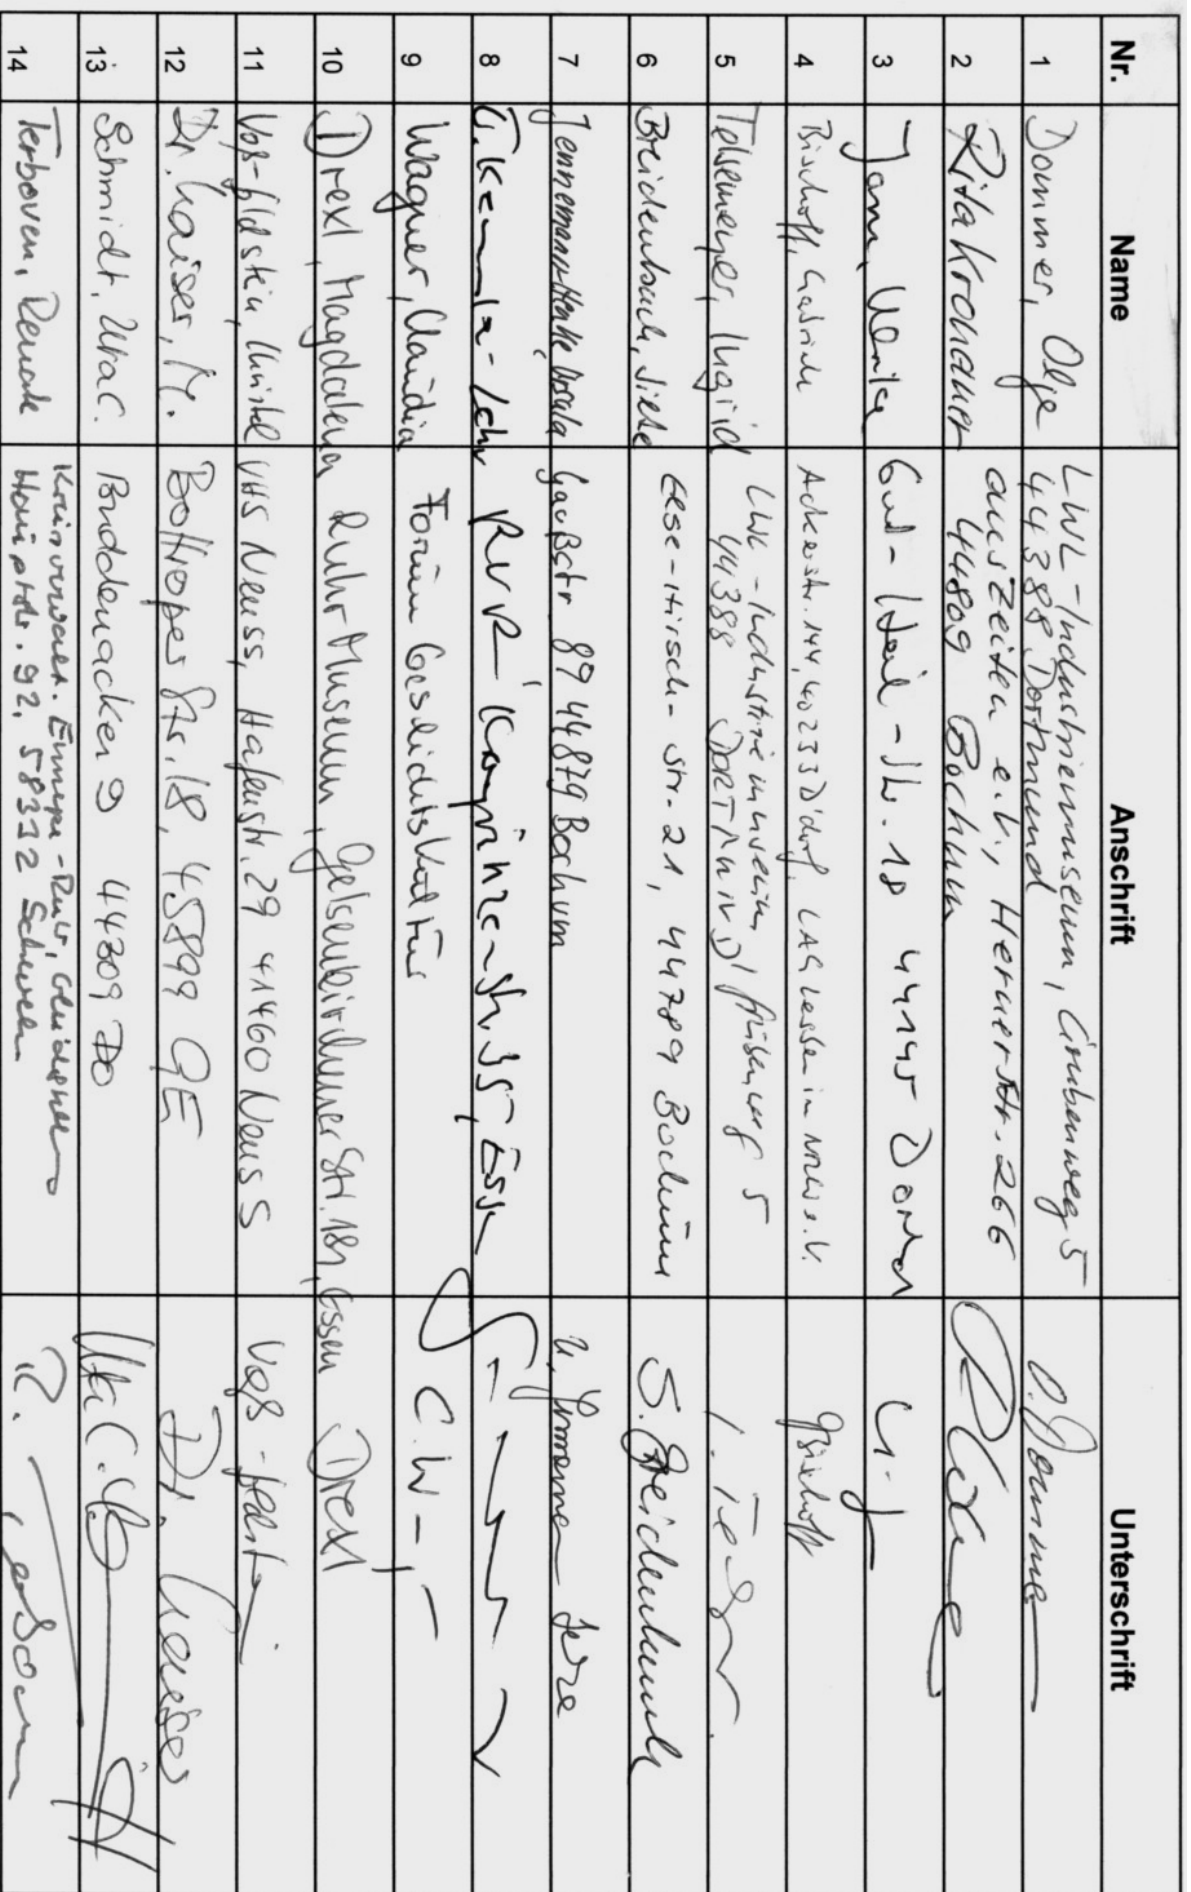 Nr. Name Anschrift Unterschrift
1 Dommer, Olge LWL-Industriemuseum, Grubenweg 5
44388 Dortmund O. Dommer
2 Rita Kronauer auszeiten e.V., Herner Str. 266
44809 Bochum
3 Jann, Ulrike 18 44145 Dortmund
4 Bischoff, Gabriele Ackerstr. 144, 40233 D'dorf, LAG Lesben in NRW e.V. GBischoff
5 Telsemeyer, Ingrid LWL-Industriemuseum, Grubenweg 5
44388 DORTMUND
6 Breidenbach, Sirke Else-Hirsch-Str. 21, 44789 Bochum S. Breidenbach
7 Jennemann-Henke, Ursula Gaußstr. 89 44879 Bochum
8 RVR, Kronprinzenstr. 35, Essen
9 Wagner, Claudia Forum Geschichtskultur C. W
10 Drexl, Magdalena Ruhr Museum, Gelsenkirchener Str. 181, Essen Drexl
11 Voß- Christel VHS Neuss, Hafenstr. 29 41460 Neuss Voß-
12 Dr. Kaiser, M. Bottroper Str. 18, 45899 GE Dr. Kaiser
13 Schmidt, Uta C. 9 44309 DO Uta C.
14 Terboven, Renate Kreisverwalt. Ennepe-Ruhr, Gleichstell
Hauptstr. 92, 58332 Schwelm R.